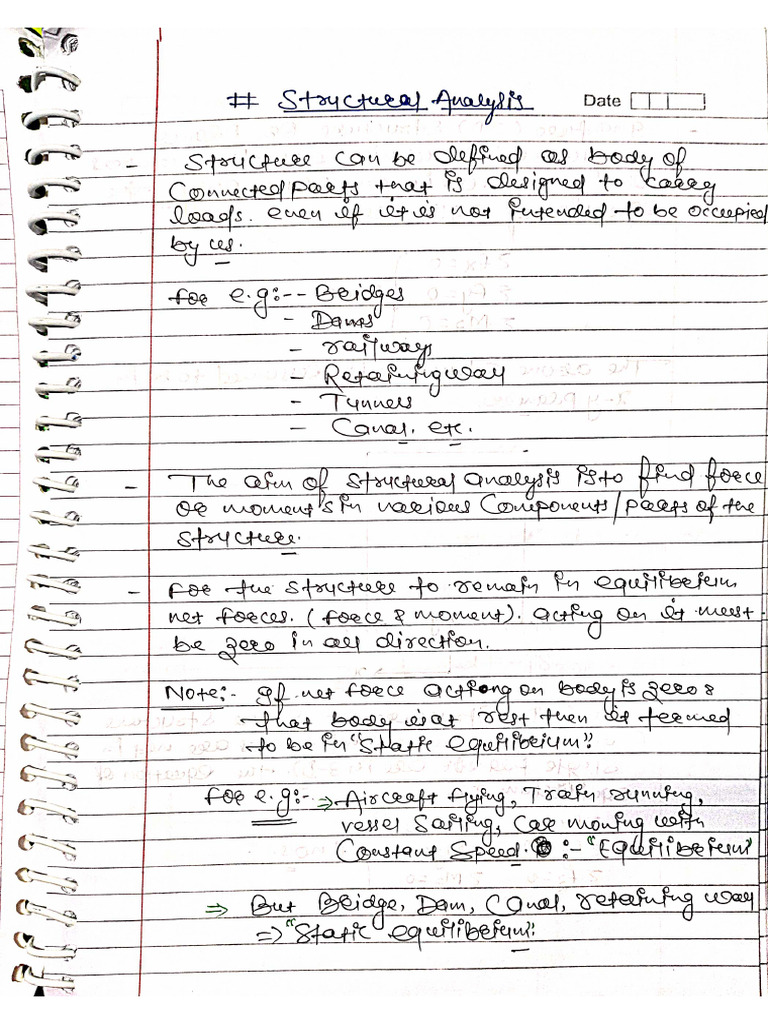 # Structural Analysis Date
- Structure can be defined as body of
Connected parts that is designed to carry
loads. even if it is not intended to be occupied
by us.
for e.g:-- Bridges
- Dams
- railways
- Retaining way
- Tunnels
- Canal. etc.
- The aim of structural analysis is to find force
or moments in various Components/parts of the
structure.
- For the structure to remain in equilibrium
net forces. (force & moment). acting on it must
be zero in all direction.
Note:- If net force acting on body is zero &
that body is at rest then it is termed
to be in "Static equilibrium".
for e.g:- ⇒ Aircraft flying, Train running,
vessel Sailing, Car moving with
Constant Speed. :- "Equilibrium"
⇒ But Bridge, Dam, Canal, retaining way
=> "Static equilibrium".